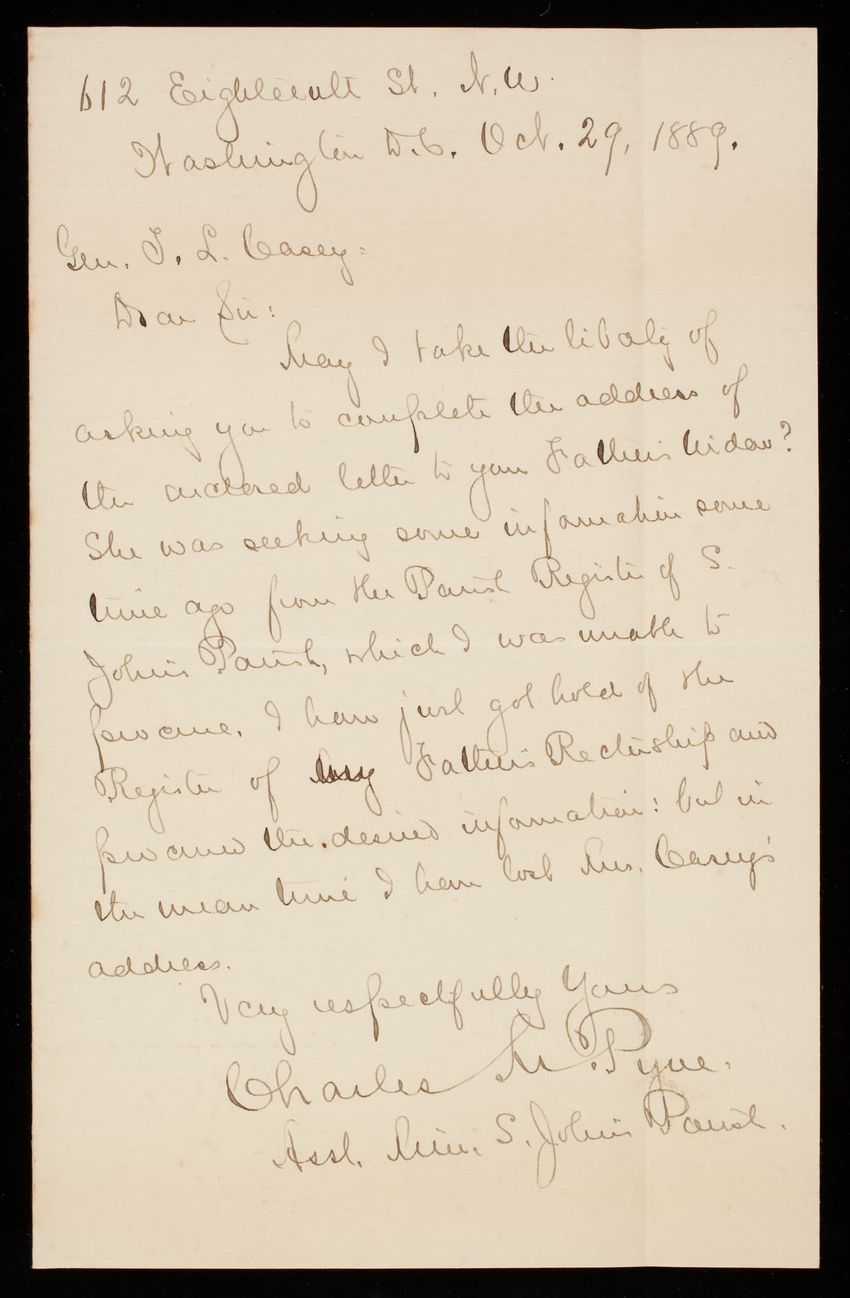 612 Eighteenth St. N.W.
Washington D.C. Oct. 29, 1889.
Gen. T. L. Casey:
Dear Sir:
May I take the liberty of
asking you to complete the address of
the enclosed letter to your Father's Widow?
She was seeking some information some
time ago from the Parish Register of S.
John's Parish, which I was unable to
procure. I have just got hold of the
Register of my Father's Rectorship and
procured the desired information: but in
the mean time I have lost Mrs. Casey's
address.
Very respectfully Yours
Charles M. Pyne.
Asst. Min. S. John's Parish.